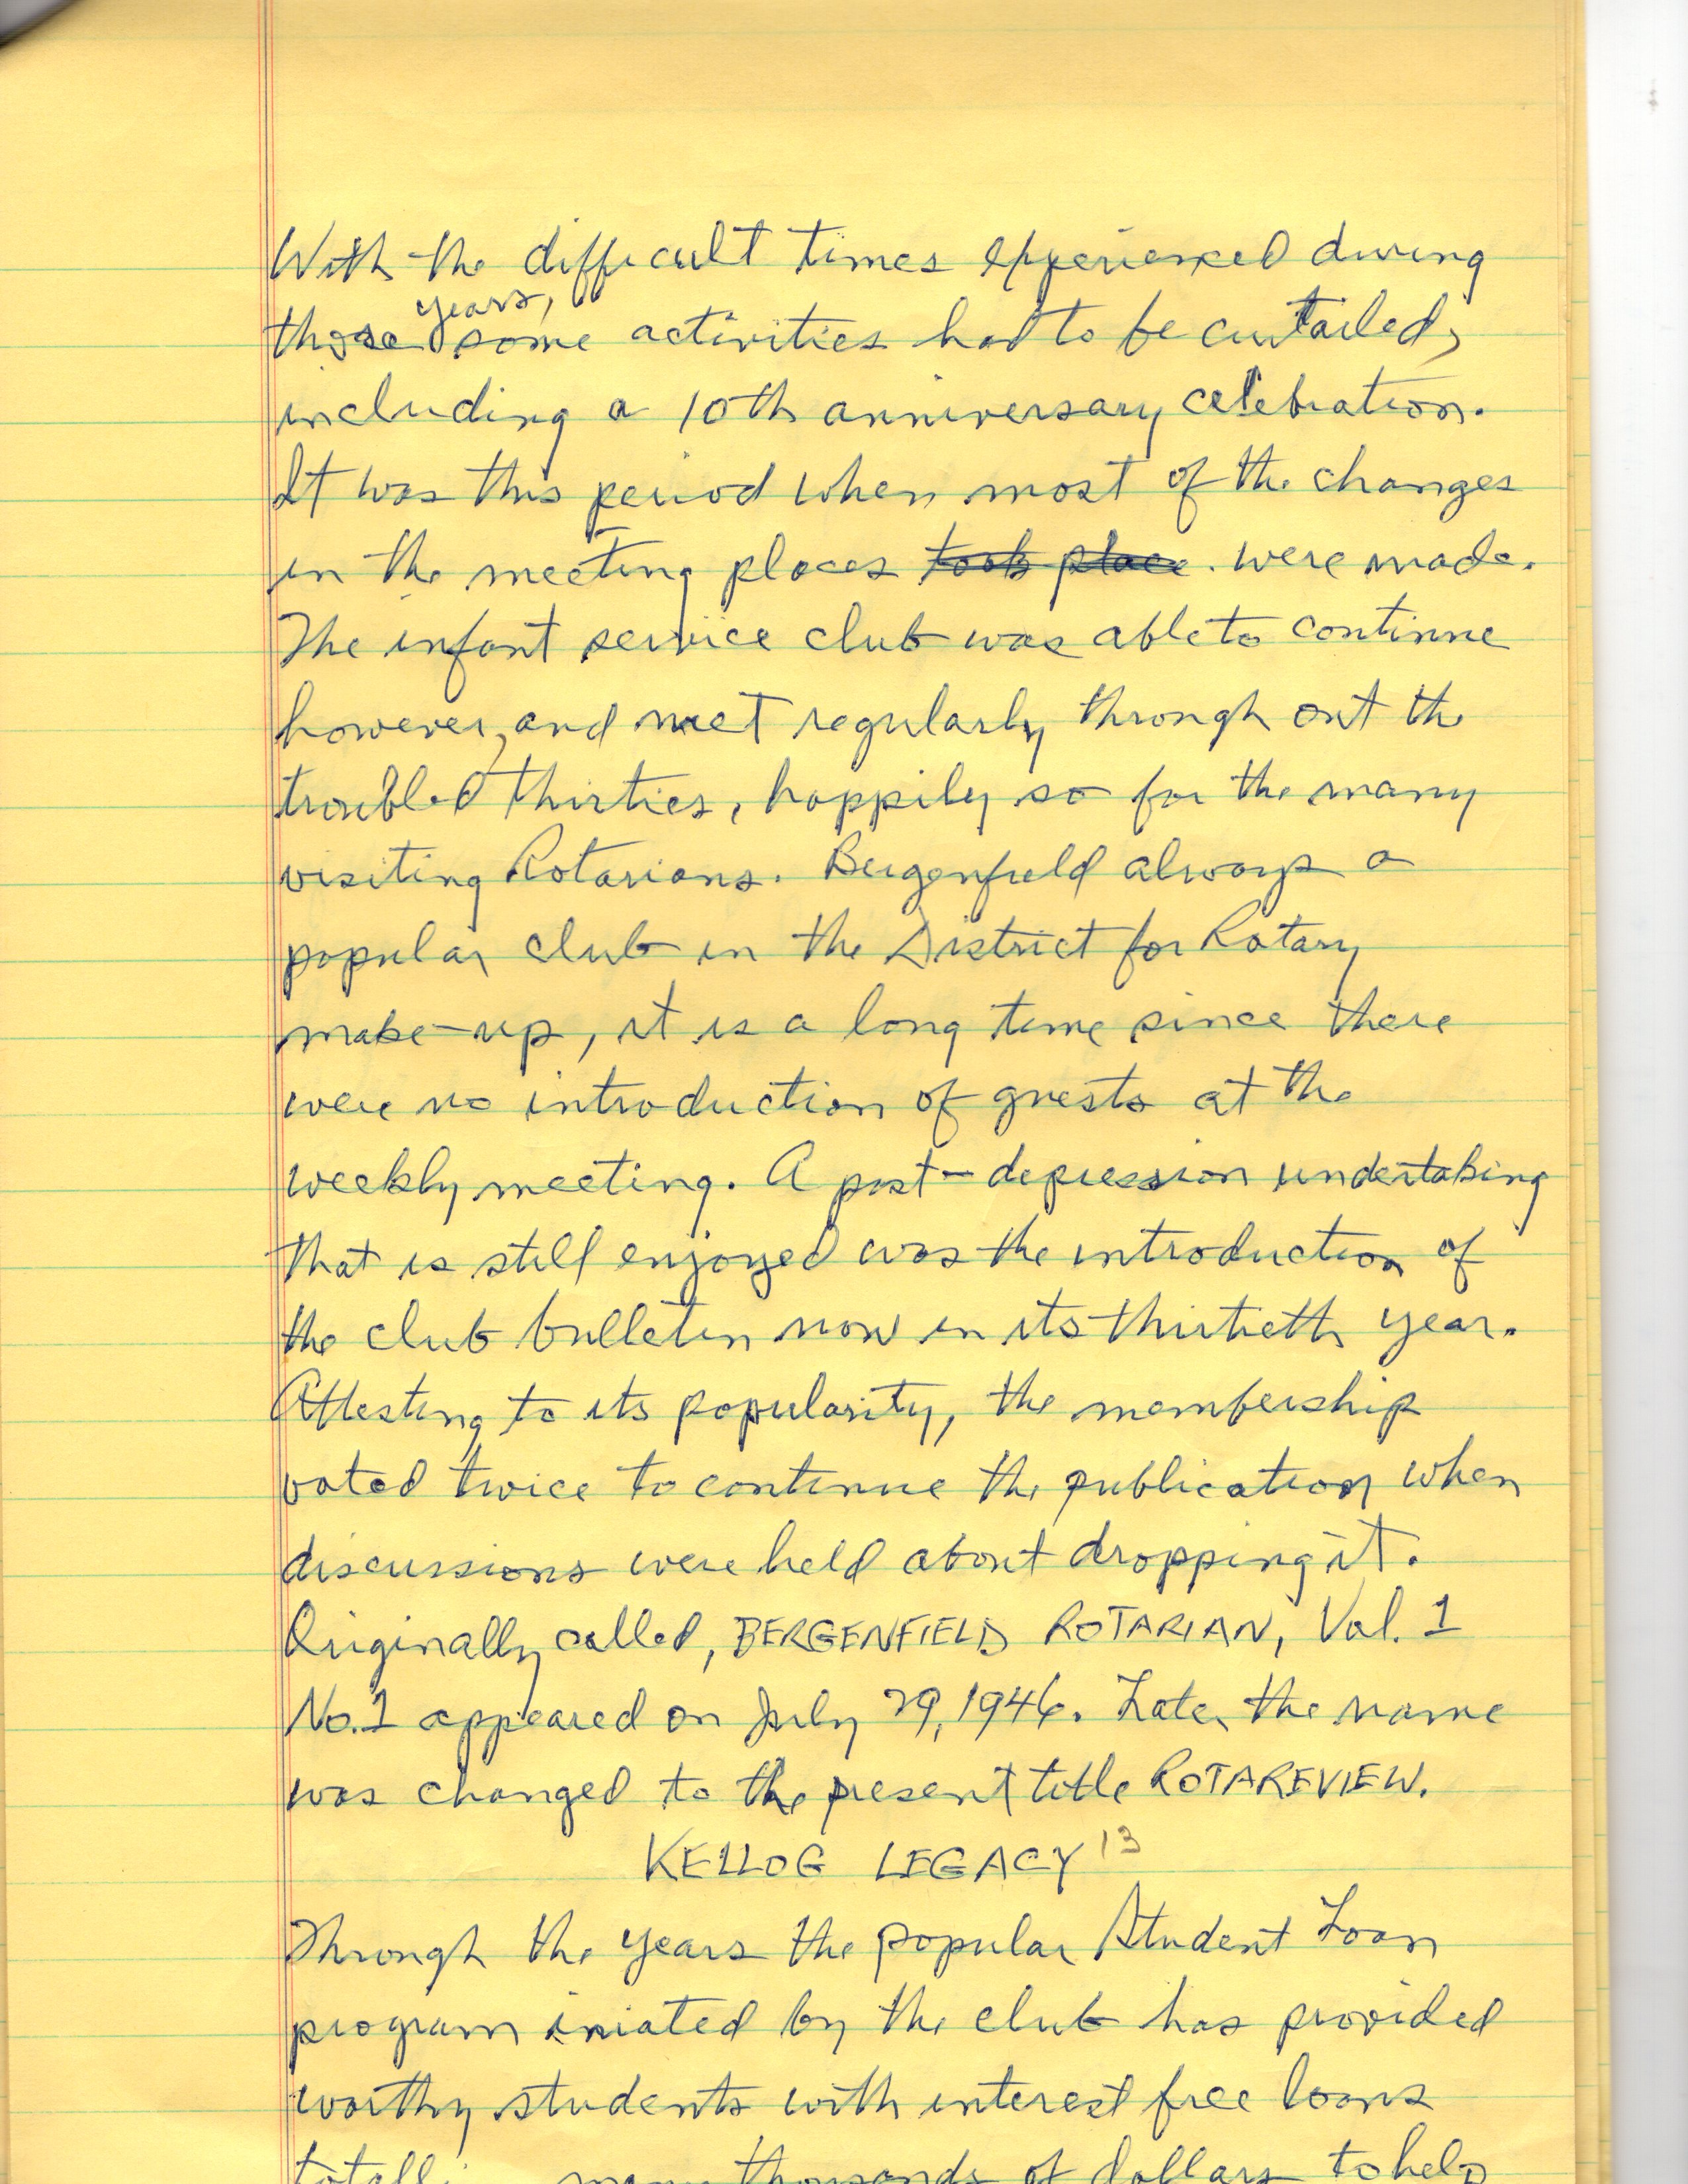 With the difficult times experienced during
those years, some activities had to be curtailed,
including a 10th anniversary celebration.
It was this period when most of the changes
in the meeting places took place. were made.
The infant service club was able to continue
however, and meet regularly through out the
troubled thirties, happily so for the many
visiting Rotarians. Bergenfield always a
popular club in the District for Rotary
make-up, it is a long time since there
were no introduction of guests at the
weekly meeting. A post-depression undertaking
that is still enjoyed was the introduction of
the club bulletin now in its thirtieth year.
Attesting to its popularity, the membership
voted twice to continue the publication when
discussions were held about dropping it.
Originally called, BERGENFIELD ROTARIAN, Vol. 1
No. 1 appeared on July 29, 1946. Later the name
was changed to the present title ROTAREVIEW.
KELLOG LEGACY 13
Through the years the popular Student Loan
program iniated by the club has provided
worthy students with interest free loans
many thousands of dollars to help